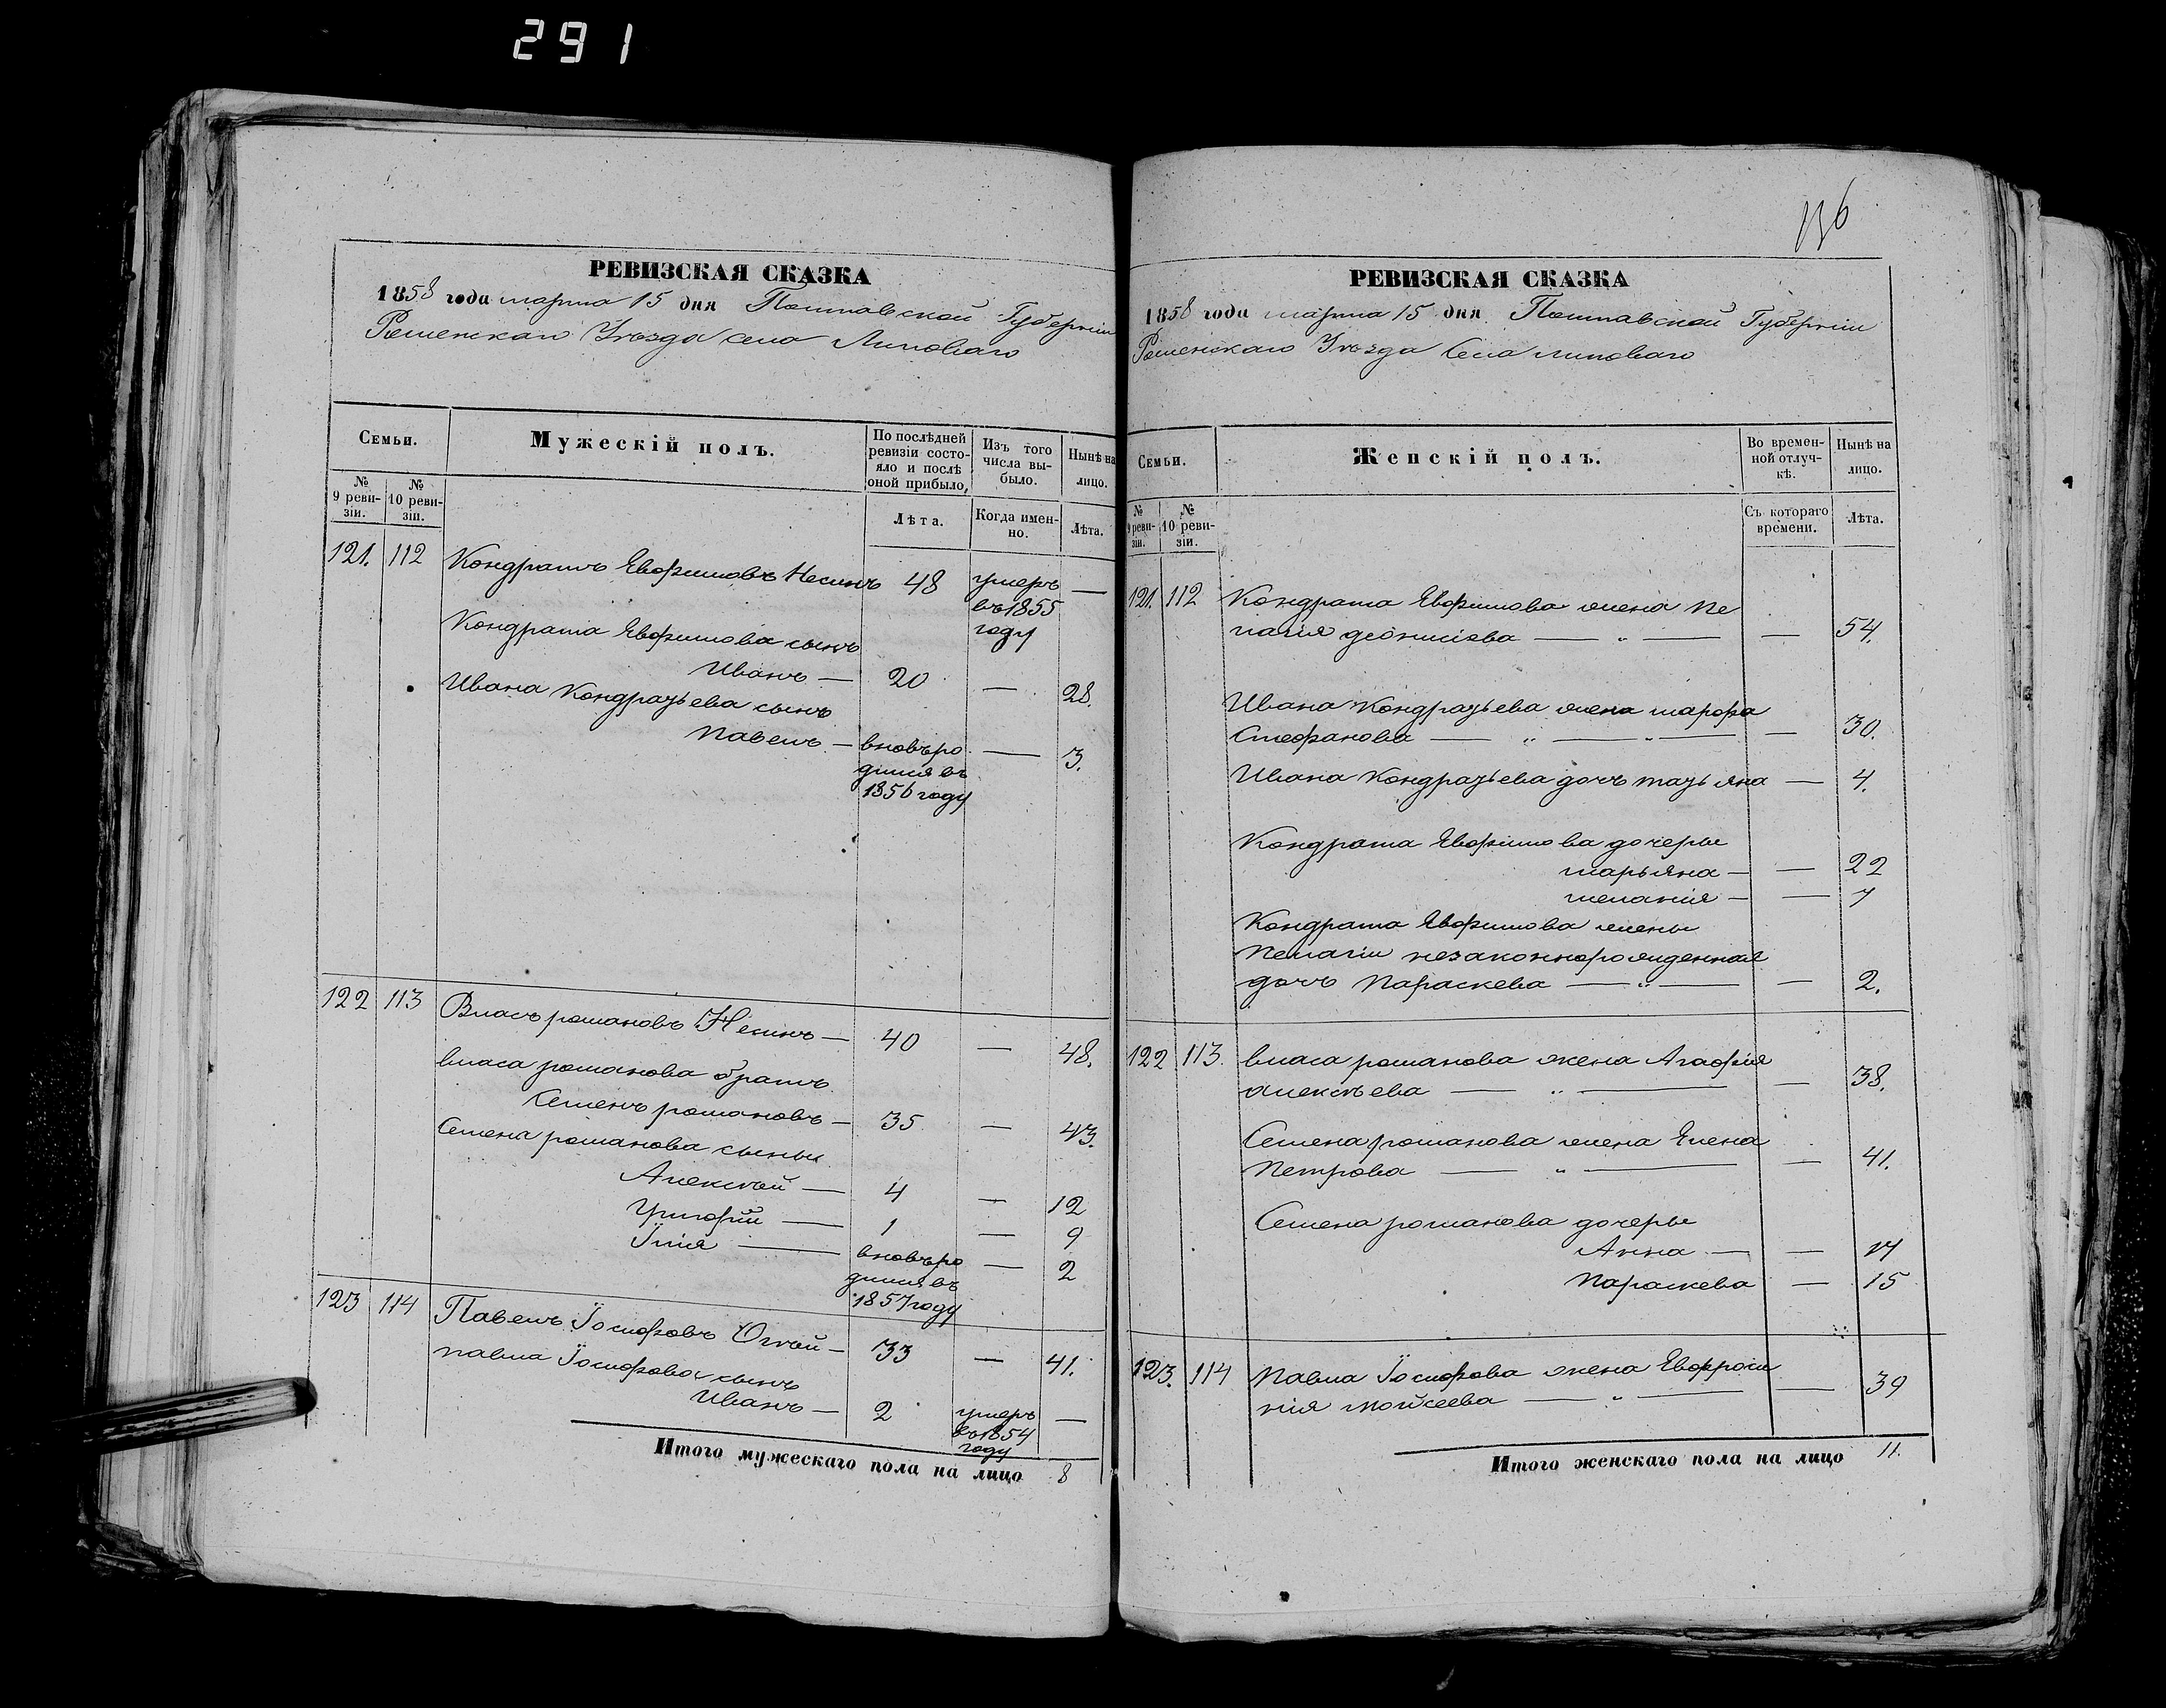 291
РЕВИЗСКАЯ СКАЗКА
1858 года марта 15 дня Полтавской Губерніи
Роменскаго Уѣзда села Липоваго
Семьи.
Мужескій полъ.
По послѣдней ревизіи состояло и послѣ оной прибыло,
Изъ того числа выбыло.
Нынѣ на лицо.
№ 9 ревизіи.
№ 10 ревизіи.
Лѣта.
Когда именно.
Лѣта.
121. 112 Кондратъ Евфимовъ Несинъ 48 умеръ —
въ 1855
году
Кондрата Евфимова сынъ
Иванъ — 20 — 28.
Ивана Кондратьева сынъ
Павелъ — вновьро — 3.
дился въ
1856 году
122 113 Власъ романовъ Несинъ — 40 — 48.
власа романова братъ
Семенъ романовъ — 35 — 43.
Семена романова сыны
Алексѣй — 4 — 12
Григорій — 1 — 9
Їлія — вновьро — 2
дился въ
1857 году
123 114 Павелъ Їосифовъ Огнѣй — 33 — 41.
павла Їосифова сынъ
Иванъ — 2 умеръ —
въ 1854
году
Итого мужескаго пола на лицо 8
136
РЕВИЗСКАЯ СКАЗКА
1858 года марта 15 дня Полтавской Губерніи
Роменскаго Уѣзда Села липоваго
Семьи.
Женскій полъ.
Во временной отлучкѣ.
Нынѣ на лицо.
№ 9 ревизіи.
№ 10 ревизіи.
Съ котораго времени.
Лѣта.
121. 112 Кондрата Евфимова жена Пе
лагія деонисіева — " — — 54.
Ивана Кондратьева жена марфа
Стефанова — " — " — — 30.
Ивана Кондратьева дочь татьяна — 4.
Кондрата Евфимова дочеры
марьяна — — 22
меланія — — 7
Кондрата Евфимова жены
Пелагіи незаконнорожденная
дочь Параскева — " — — 2.
122 113. власа романова жена Агафія
алексѣева — " — — 38.
Семена романова жена Елена
Петрова — " — — 41.
Семена романова дочеры
Анна — — 17
Параскева — 15
123. 114 Павла Їосифова жена Евфроси
нія мойсеева — " — — 39
Итого женскаго пола на лицо 11.